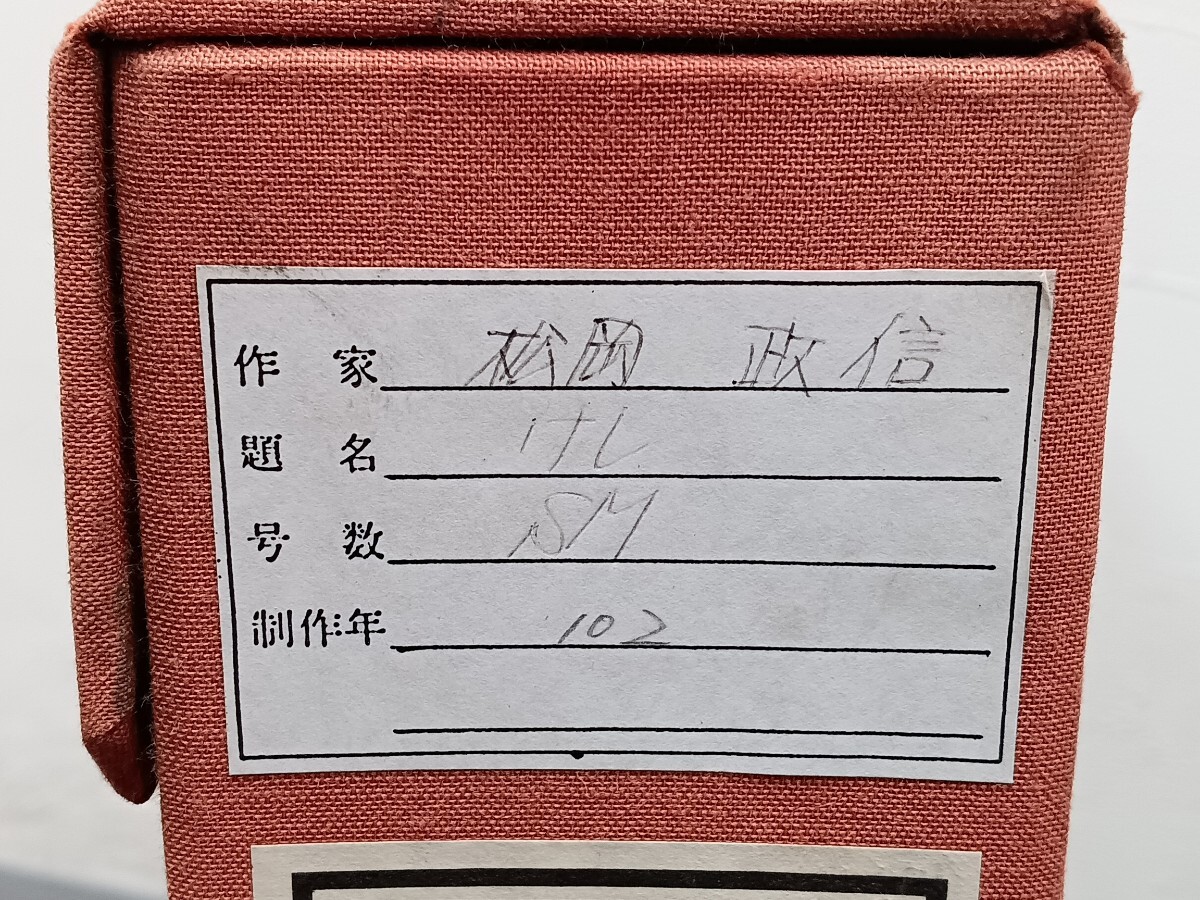 作家 松岡 政信
題名 けし
号数 SM
制作年 102